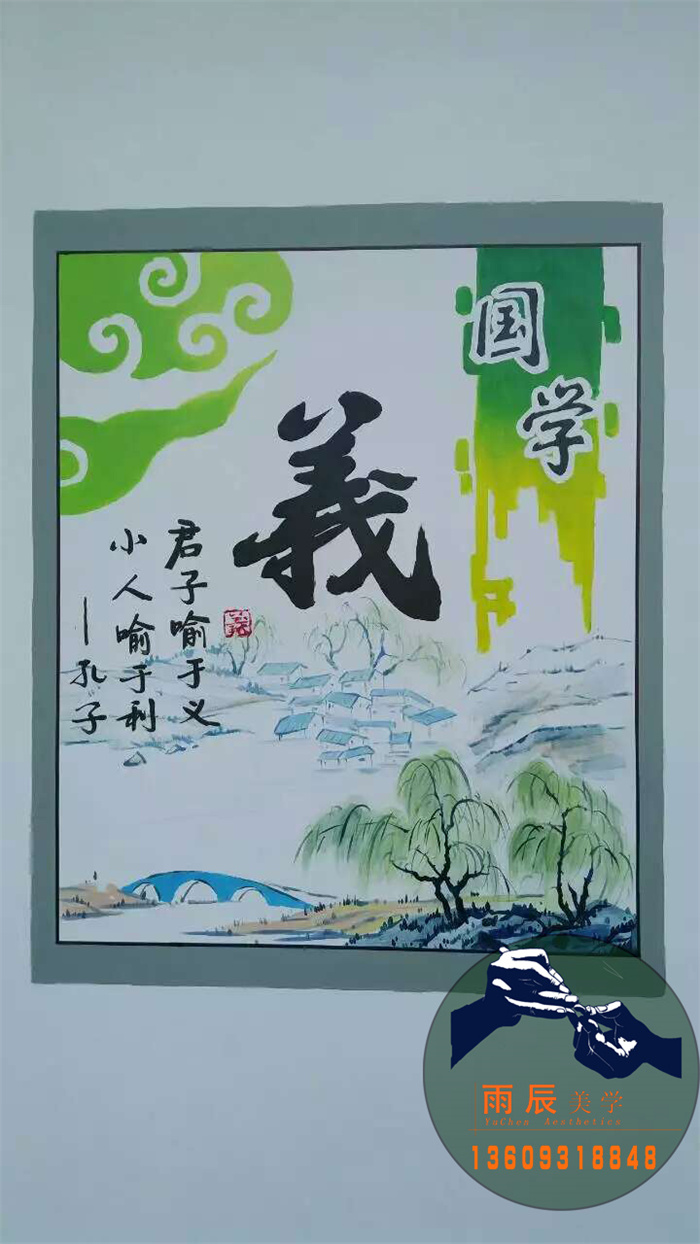 国学
義
君子喻于义
小人喻于利
—孔子
雨辰美学
YuChen Aesthetics
13609318848